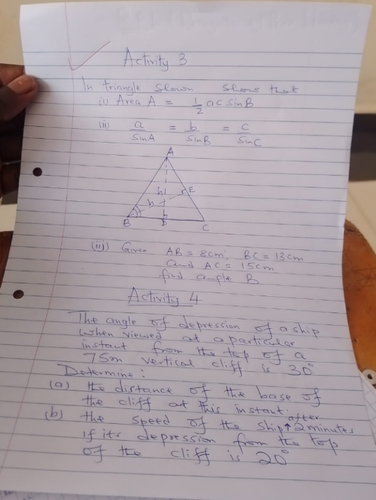 Activity 3
In triangle shown show that
(i) Area A = 1/2 ac sin B
(ii) a/sinA = b/sinB = c/sinC
A
h E
h
B D C
(iii) Given AB = 8cm, BC = 13cm
and AC = 15cm
find angle B
Activity 4
The angle of depression of a ship
when viewed at a particular
instant from the top of a
75m vertical cliff is 30°
Determine:
(a) the distance of the base of
the cliff at this instant.
(b) the speed of the ship after 2 minutes
if its depression from the top
of the cliff is 20°